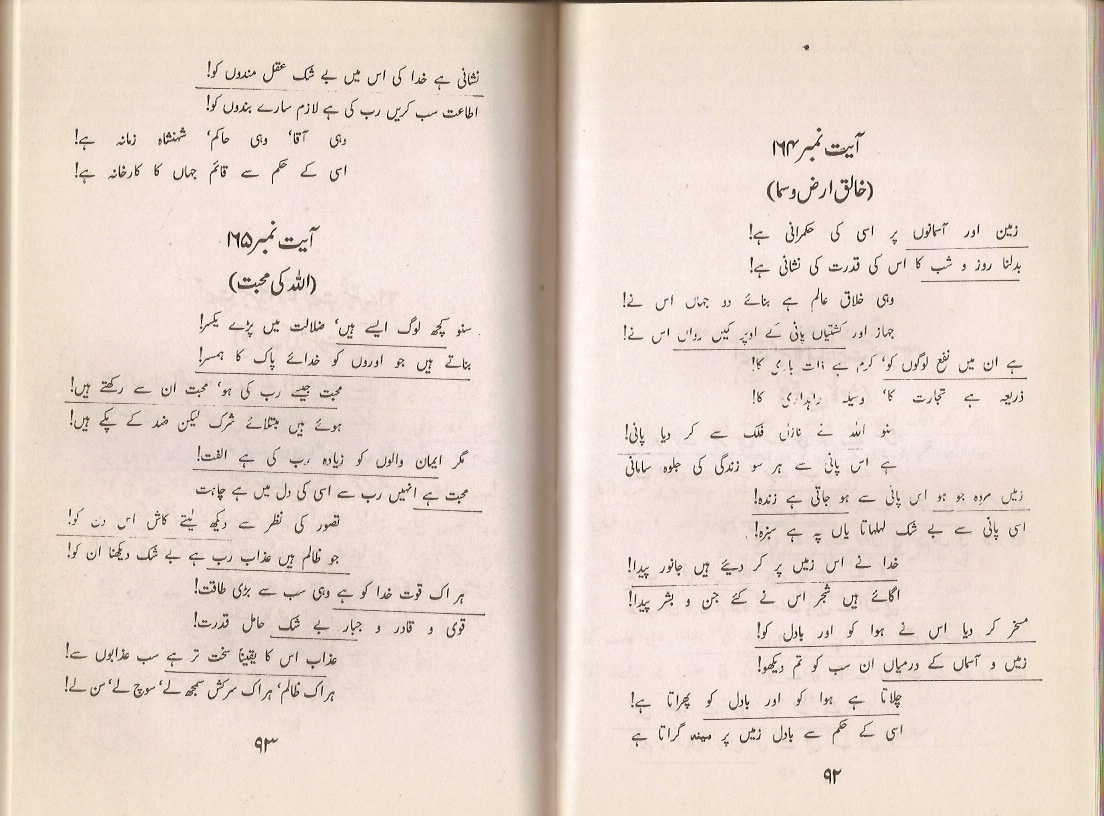 آیت نمبر ۱۶۴
(خالق ارض و سما)
زمین اور آسمانوں پر اسی کی حکمرانی ہے!
بدلنا روز و شب کا اس کی قدرت کی نشانی ہے!
وہی خلاق عالم ہے بنائے دو جہاں اس نے!
جہاز اور کشتیاں پانی کے اوپر کیں رواں اس نے!
ہے ان میں نفع لوگوں کو‘ کرم ہے ذات باری کا!
ذریعہ ہے تجارت کا‘ وسیلہ راہداری کا!
سنو اللہ نے نازل فلک سے کر دیا پانی!
ہے اس پانی سے ہر سو زندگی کی جلوہ سامانی
زمیں مردہ جو ہو اس پانی سے ہو جاتی ہے زندہ!
اسی پانی سے بے شک لہلہاتا یاں پہ ہے سبزہ!
خدا نے اس زمیں پر کر دیئے ہیں جانور پیدا!
اگائے ہیں شجر اس نے کئے جن و بشر پیدا!
مسخر کر دیا اس نے ہوا کو اور بادل کو!
زمیں و آسماں کے درمیاں ان سب کو تم دیکھو!
چلاتا ہے ہوا کو اور بادل کو پھراتا ہے!
اسی کے حکم سے بادل زمیں پر مینہ گراتا ہے
۹۲
نشانی ہے خدا کی اس میں بے شک عقل مندوں کو!
اطاعت سب کریں رب کی ہے لازم سارے بندوں کو!
وہی آقا‘ وہی حاکم‘ شہنشاہ زمانہ ہے!
اسی کے حکم سے قائم جہاں کا کارخانہ ہے!
آیت نمبر ۱۶۵
(اللہ کی محبت)
سنو کچھ لوگ ایسے ہیں‘ ضلالت میں پڑے یکسر!
بناتے ہیں جو اوروں کو خدائے پاک کا ہمسر!
محبت جیسے رب کی ہو‘ محبت ان سے رکھتے ہیں!
ہوئے ہیں مبتلائے شرک لیکن ضد کے پکے ہیں!
مگر ایمان والوں کو زیادہ رب کی ہے الفت!
محبت ہے انہیں رب سے اسی کی دل میں ہے چاہت
تصور کی نظر سے دیکھ لیتے کاش اس دن کو!
جو ظالم ہیں عذاب رب ہے بے شک دیکھنا ان کو!
ہر اک قوت خدا کو ہے وہی سب سے بڑی طاقت!
قوی و قادر و جبار بے شک حامل قدرت!
عذاب اس کا یقیناً سخت تر ہے سب عذابوں سے!
ہر اک ظالم‘ ہر اک سرکش سمجھ لے‘ سوچ لے‘ سن لے!
۹۳